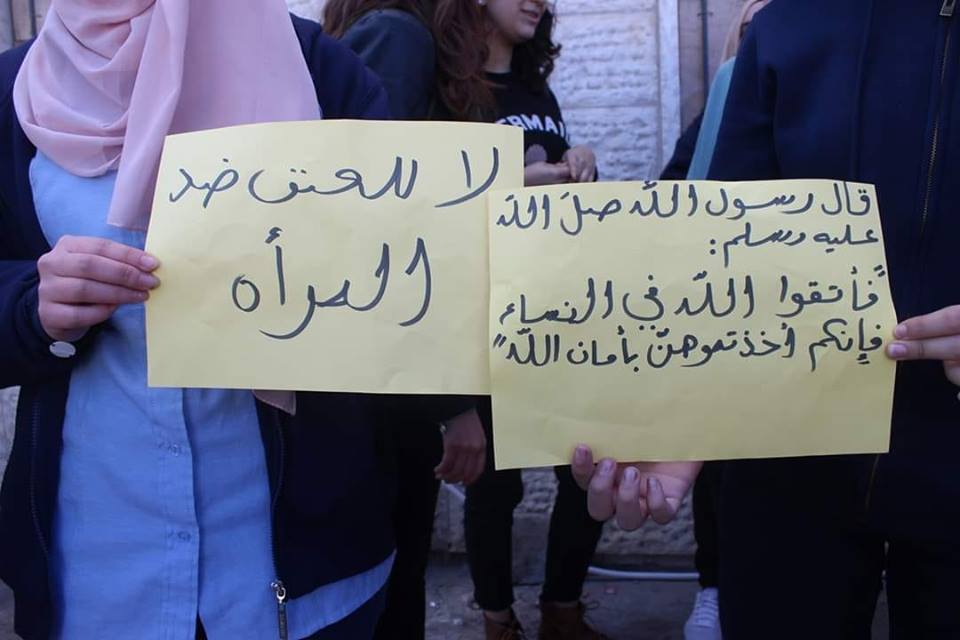 لا للعنف ضد
المرأه
قال رسول اللّه صلَ اللَه
عليه وسلم:
"فأتقوا اللّه في النساء
فإنكم أخذتموهنّ بأمان اللّه"